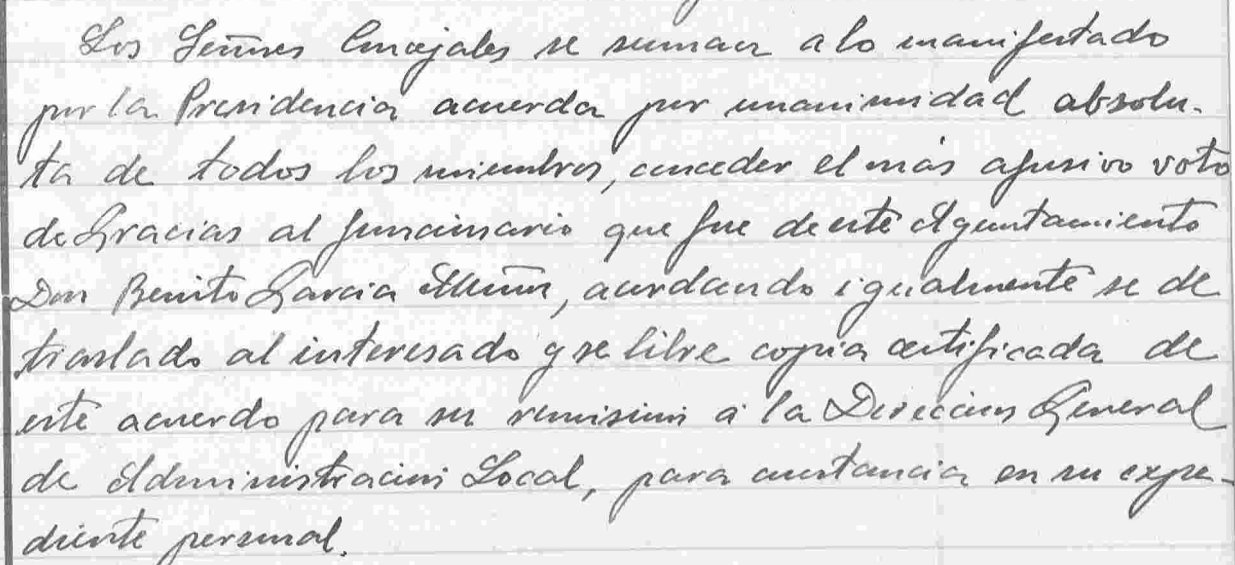 Los Señores Concejales se suman a lo manifestado
por la Presidencia acuerda por unanimidad absolu-
ta de todos los miembros, conceder el más afusivo voto
de Gracias al funcionario que fue de este Ayuntamiento
Don Benito Garcia acordando igualmente se de
traslado al interesado y se libre copia certificada de
este acuerdo para su remision a la Direccion General
de Administracion Local, para constancia en su expe-
diente personal.